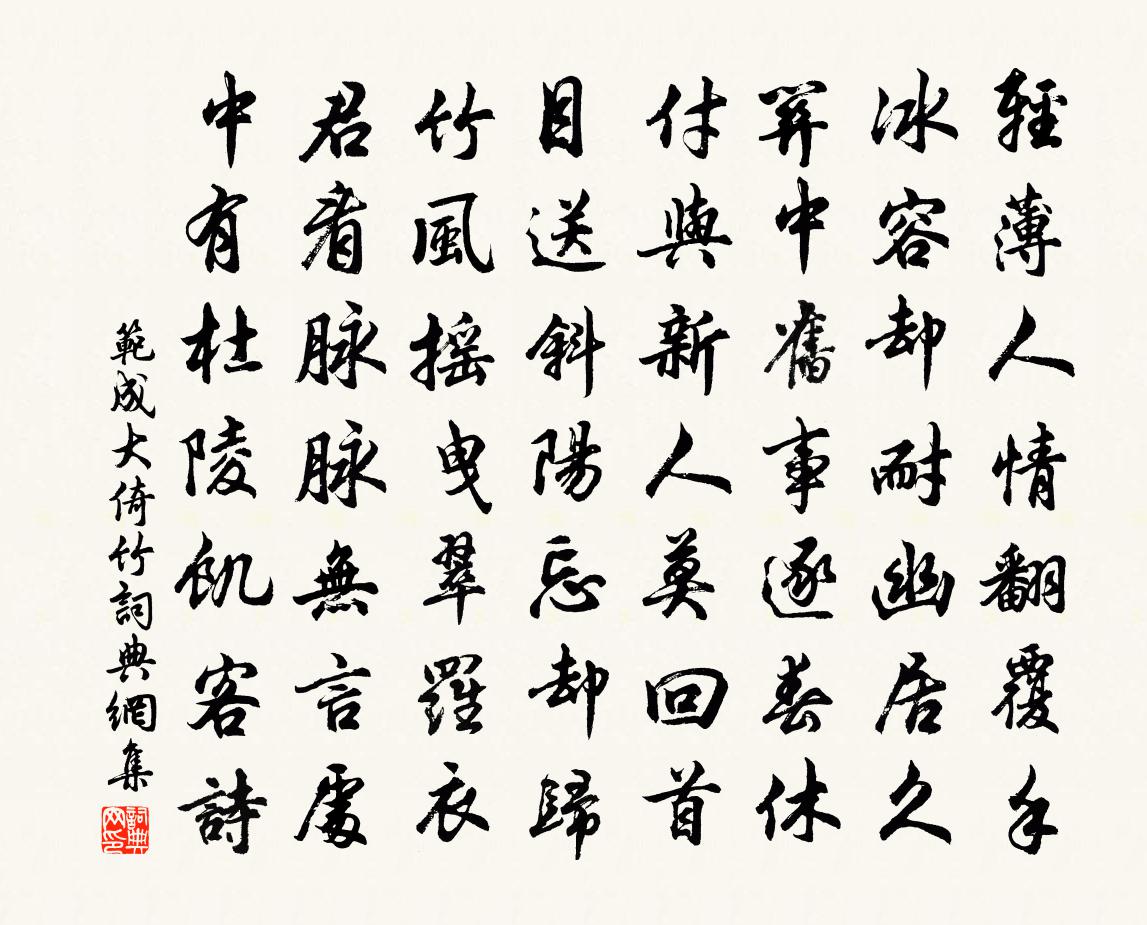 輕薄人情翻覆手
冰容却耐幽居久
笄中舊事逐春休
付與新人莫回首
目送斜陽忘却歸
竹風搖曳翠羅衣
君看脉脉無言處
中有杜陵飢客詩
範成大倚竹詞典網集
詞典网印